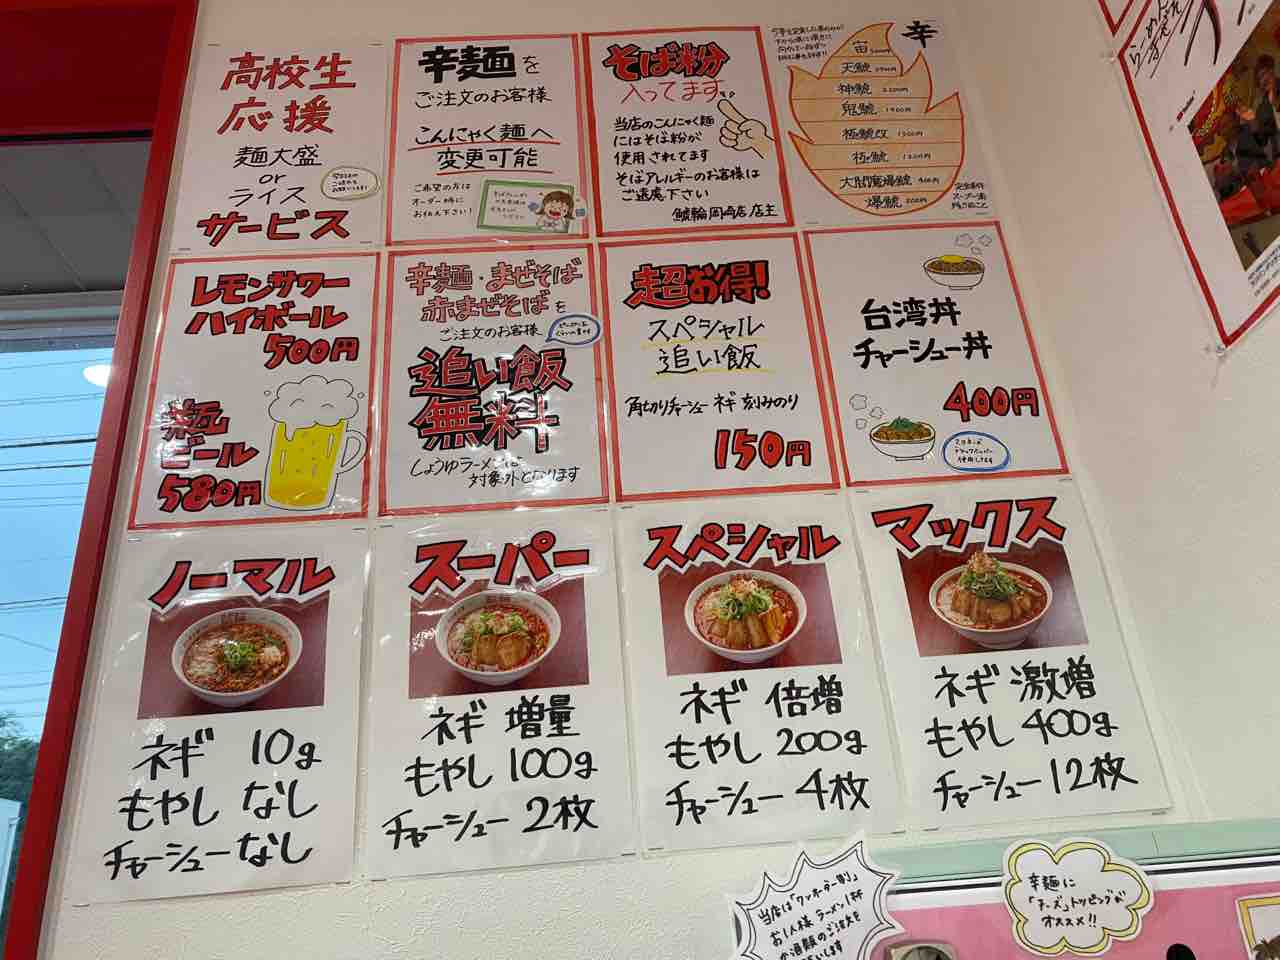 高校生
応援
麺大盛
or
ライス
サービス
辛麺を
ご注文のお客様
こんにゃく麺へ
変更可能
ご希望の方は
オーダー時に
お伝え下さい!
そば粉
入ってます
当店のこんにゃく麺
にはそば粉が
使用されてます
そばアレルギーのお客様は
ご遠慮下さい
鯱輪岡崎店 店主
辛
宙
天鯱
神鯱
鬼鯱 1900円
極鯱改 1500円
極鯱 1200円
大閻魔爆鯱
爆鯱
完食条件
スープ一滴
残さぬこと
レモンサワー
ハイボール
500円
瓶
ビール
580円
辛麺・まぜそば
赤まぜそばを
ご注文のお客様
追い飯
無料
しょうゆラーメンは
対象外となります
超お得!
スペシャル
追い飯
角切りチャーシュー ネギ 刻みのり
150円
台湾丼
チャーシュー丼
400円
ノーマル
ネギ 10g
もやし なし
チャーシューなし
スーパー
ネギ 増量
もやし 100g
チャーシュー 2枚
スペシャル
ネギ 倍増
もやし 200g
チャーシュー 4枚
マックス
ネギ 激増
もやし 400g
チャーシュー 12枚
当店は「ワンオーダー制」
お1人様 ラーメン1杯
か酒類のご注文を
辛麺に
「チーズ」トッピングが
オススメ!!